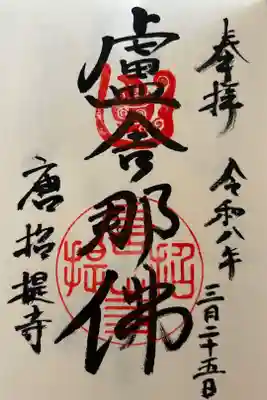 奉拝
令和八年
三月二十五日
盧舎那佛
唐招提寺